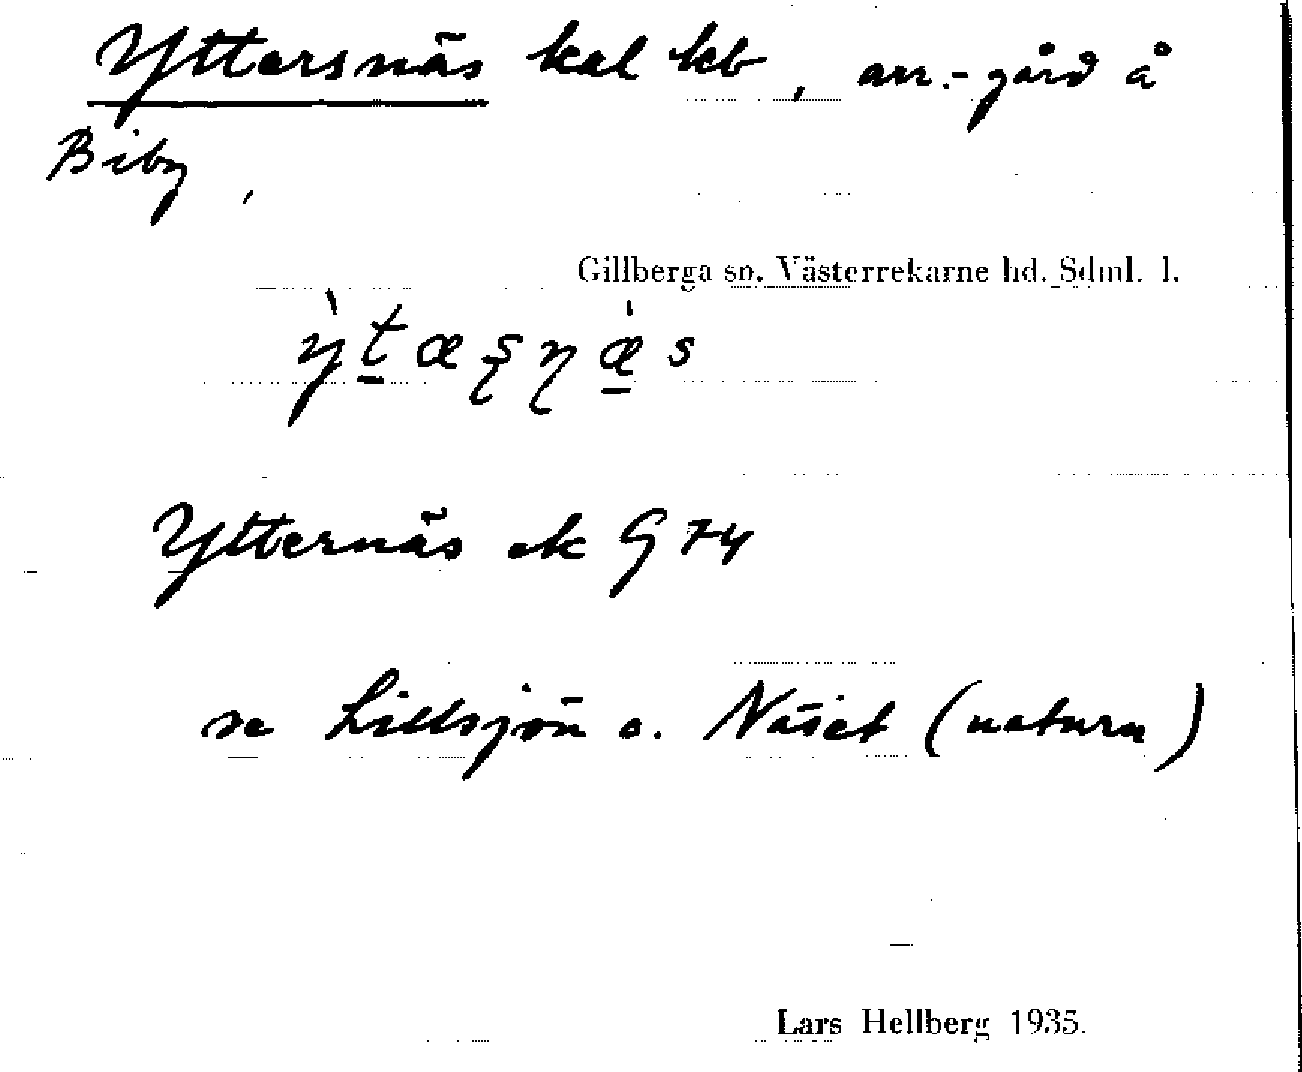 Yttersnäs kal kb, arr.-gård å
Biby,
Gillberga sn. Västerrekarne hd. Sdml. l.
Ytternäs ek G 74
se Lillsjön o. Näset (naturn)
Lars Hellberg 1935.